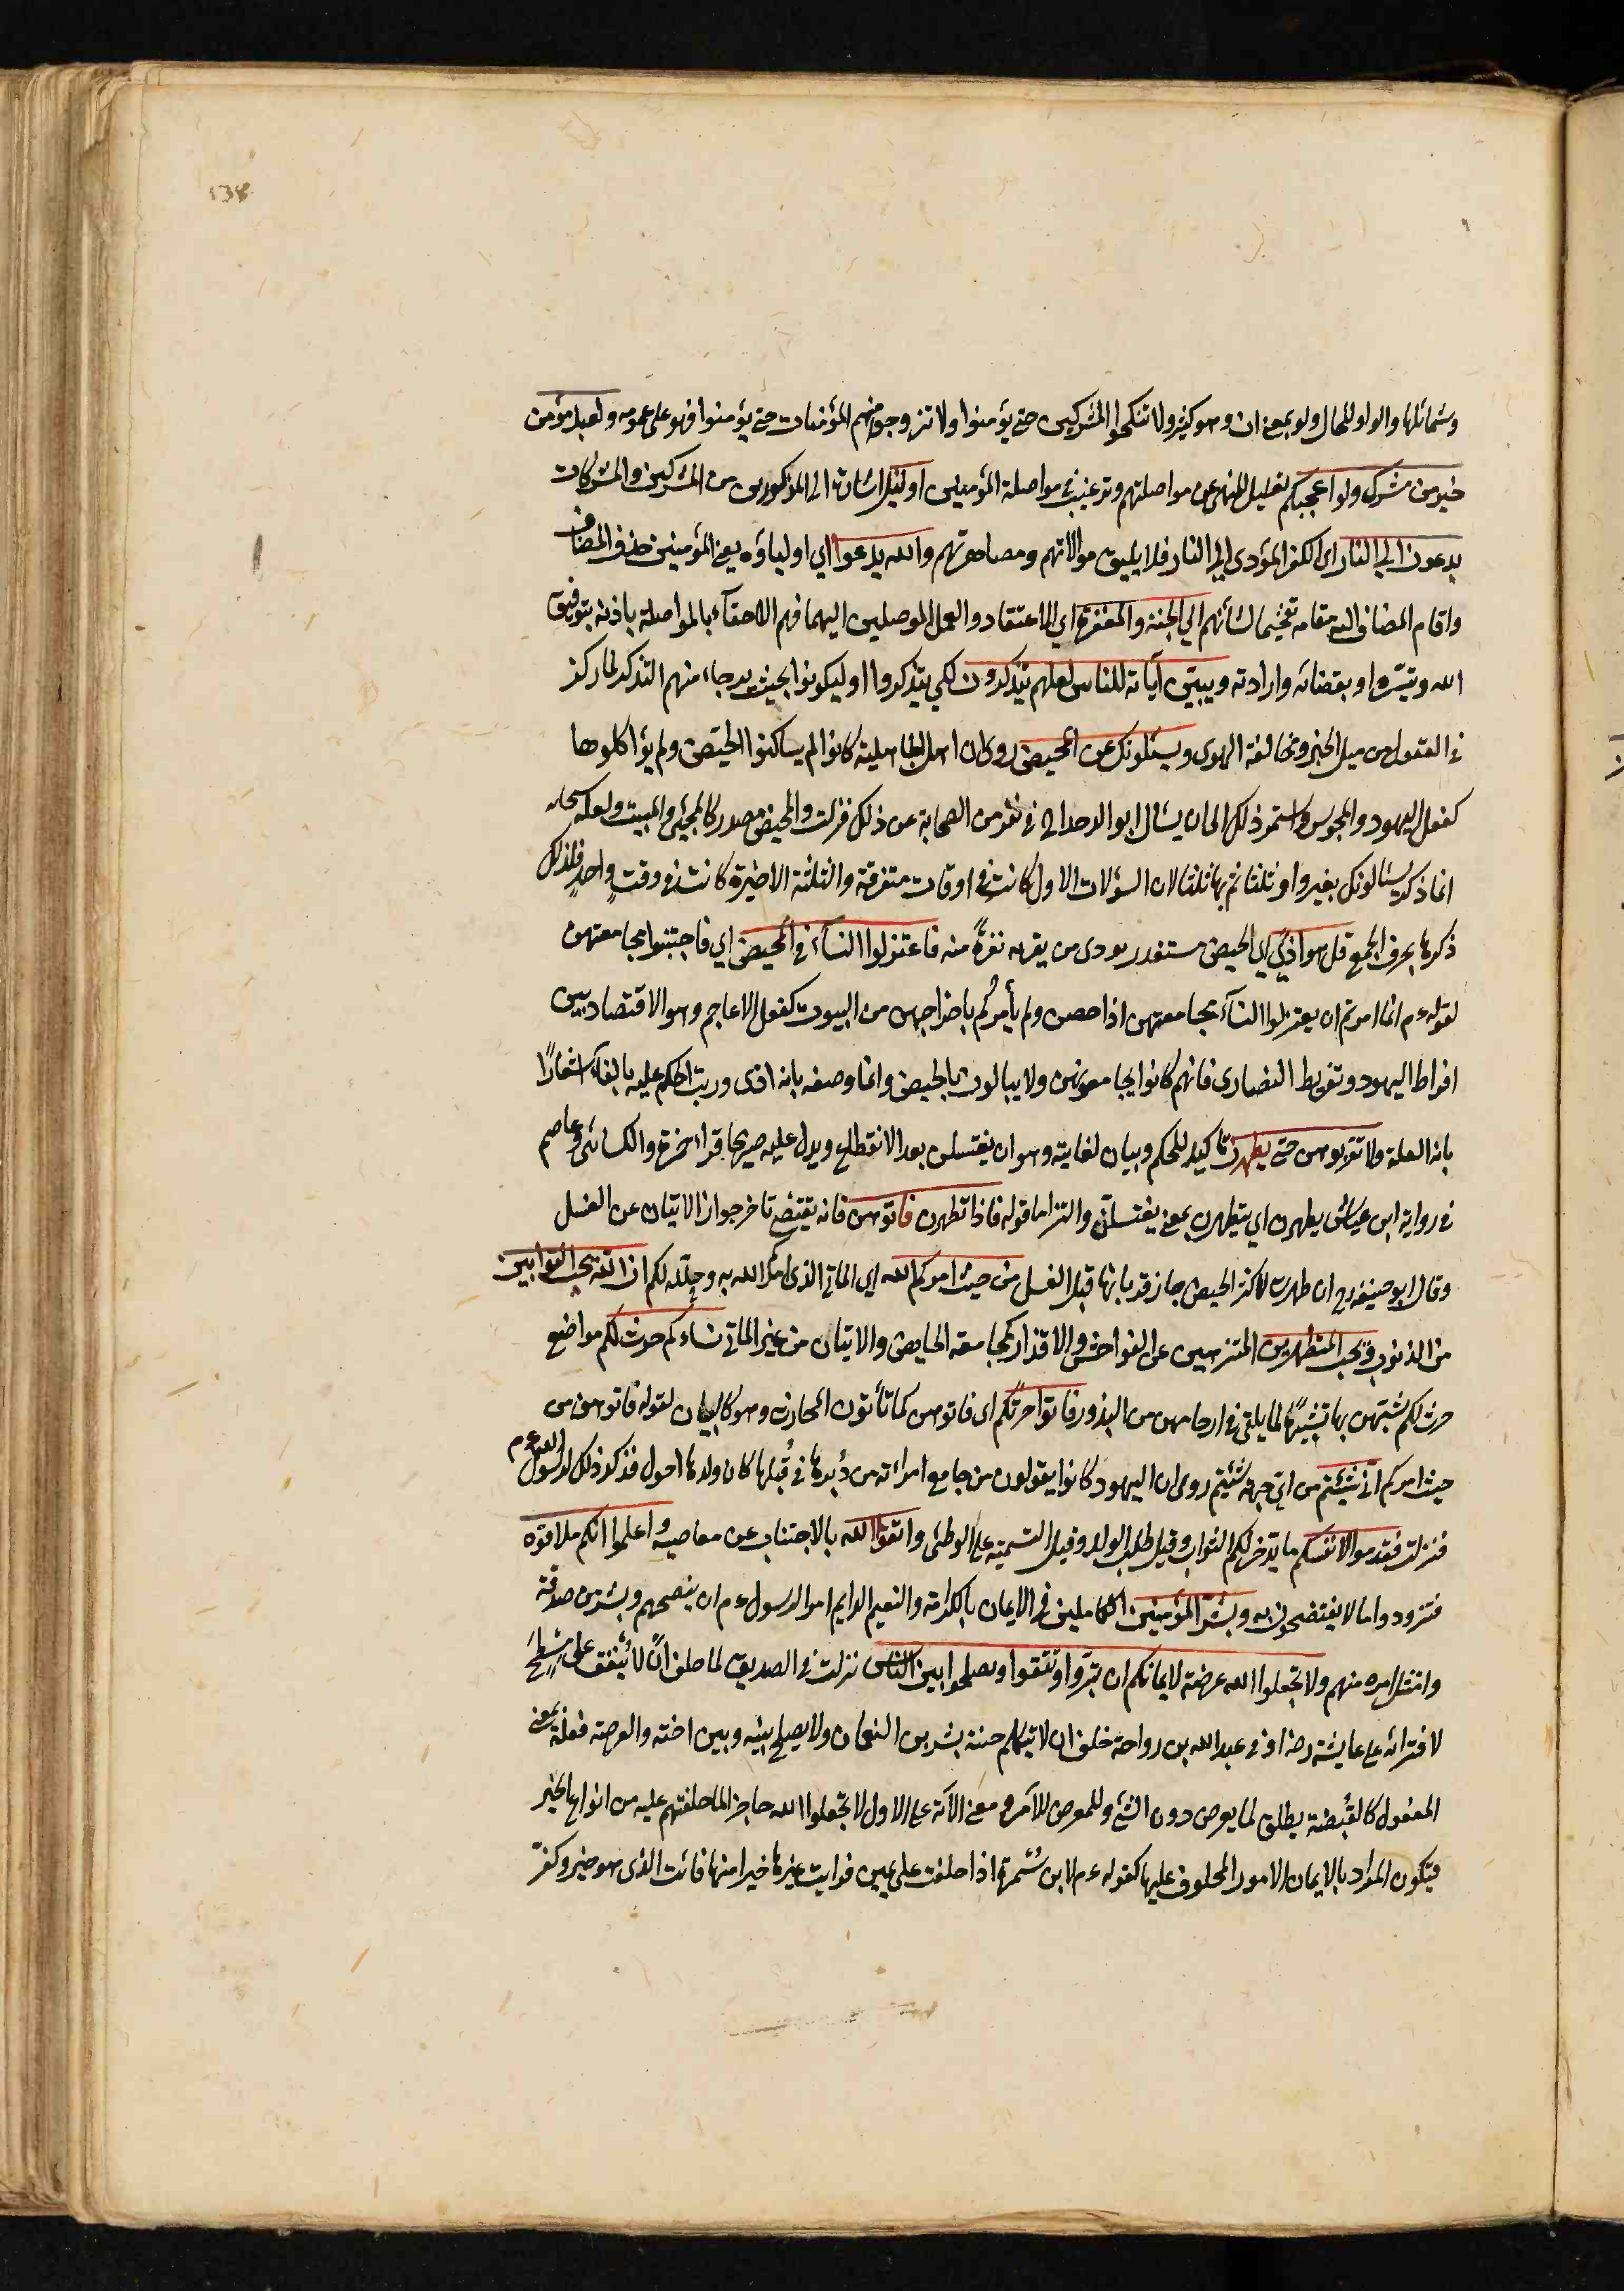 138
وشمائلها والواو للحال ولو بمعنى ان وهو كثير ولا تنكحوا المشركين حتى يؤمنوا ولا تزوجوا منهم المؤمنات حتى يؤمنوا فهو على عمومه ولعبد مؤمن
خير من مشرك ولو اعجبكم تعليل للنهى عن مواصلتهم وترغيب فى مواصلة المؤمنين اولئك اشارة الى المذكورين من المشركين والمشركات
يدعون الى النار اى الكفر المؤدى الى النار فلا يليق موالاتهم ومصاهرتهم والله يدعوا اي اولياؤه يعنى المؤمنين حذف المضاف
واقام المضاف اليه مقامه تفخيما لشأنهم الي الجنة والمغفرة اي الاعتقاد والعمل الموصلين اليهما فهم الاحقاء بالمواصلة باذنه بتوفيق
الله وتيسيره او بقضائه وارادته ويبين آياته للناس لعلهم يتذكرون لكي يتذكروا او ليكونوا بحيث يرجاء منهم التذكر لما ركز
فى العقول من ميل الخير ومخالفة الهوى ويسئلونك عن المحيض روى ان اهل الجاهلية كانوا لم يساكنوا الحيض ولم يؤاكلوها
كفعل اليهود والمجوس واستمر ذلك الى ان يسال ابو الدحداح فى نفر من الصحابة عن ذلك فنزلت والمحيض مصدر كالمجئ والمبيت ولعله سبحانه
انما ذكر يسئالونك بغير واو ثلثا ثم بها ثلثا لان السؤلات الاول كانت فى اوقات متفرقة والثلثة الاخيرة كانت فى وقتٍ واحدٍ فلذلك
ذكرها بحرف الجمع قل هو اذًى اي الحيض مستقذر مودى من يقربه نفرةً منه فاعتزلوا النسآء فى المحيض اي فاجتنبوا مجامعتهن
لقوله ءم انما امرتم ان يعتزلوا النسآء مجامعتهن اذا حضن ولم يأمركم باخراجهن من البيوت كفعل الاعاجم وهو الاقتصاد بين
افراط اليهود وتفريط النصارى فانهم كانوا يجامعونهن ولا يبالون بالحيض وانما وصفه بانه اذى ورتب الحكم عليه بالفآء اشعارًا
بانه العلة ولا تقربوهن حتى يطهرن تاكيد للحكم وبيان لغايته وهو ان يغتسلن بعد الانقطاع ويدل عليه صريحا قراءة حمزة والكسائى وعاصم
فى رواية ابن عياش يطهرن اي يتطهرن بمعنى يغتسلن والتزاما قوله فاذا تطهرن فاتوهن فانه يقتضى تاخر جواز الاتيان عن الغسل
وقال ابو حنيفة رح ان طهرت لاكثر الحيض جاز قربانها قبل الغسل من حيث امركم الله اي المأتي الذى امركم الله به وحلله لكم ان الله يحب التوابين
من الذنوب ويحب المتطهرين المتنزهين عن الفواحش والاقذار كمجامعة الحايض والاتيان من غير المأتى نساءكم حرث لكم مواضع
حرث لكم شبههن بها تشبيهًا لما يلقى فى ارحامهن من البذور فاتوا حرثكم اى فاتوهن كما تأتون المحارث وهو كالبيان لقوله فاتوهن من
حيث امركم انى شئتم من اى جهة شئتم روى ان اليهود كانوا يقولون من جامع امراته من دبرها فى قبلها كان ولدها احول فذكر ذلك لرسول الله ءم
فنزلت وقدموا لانفسكم ما يدخر لكم الثواب وقيل طلب الولد وقيل التسمية على الوطئ واتقوا الله بالاجتناب عن معاصيه واعلموا انكم ملاقوه
فتزودوا ما لا يفتضحون به وبشر المؤمنين الكاملين فى الايمان بالكرامة والنعيم الدايم امر الرسول ءم ان ينصحهم ويبشر من صدقه
وامتثل امره منهم ولا تجعلوا الله عرضة لايمانكم ان تبروا وتتقوا وتصلحوا بين الناس نزلت فى الصديق لما حلف ان لا ينفق على مسطح
لافترائه على عايشة رضه او فى عبد الله بن رواحة حلف ان لا يتكلم ختنه بشر بن النعمان ولا يصلح بينه وبين اخته والعرضة فعلة بمعنى
المفعول كالقبضة يطلق لما يعرض دون الشئ وللمعرض للامر ومعنى الآية على الاول لا تجعلوا الله حاجزا لما حلفتم عليه من انواع الخير
فيكون المراد بالايمان الامور المحلوف عليها كقوله ءم لابن سمرة اذا حلفت على يمين فرايت غيرها خيرا منها فائت الذى هو خير وكفر